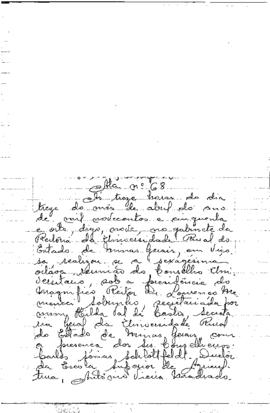 Ata nº 68
Às treze horas do dia
treze do mês de abril do ano
de mil novecentos e cinquenta
e oito, digo, nove, no gabinete da
Reitoria da Universidade Rural do
Estado de Minas Gerais, em Viço
sa realizou-se a sexagésima
oitava reunião do Conselho Uni
versitário, sob a presidência do
Magnífico Reitor Dr. Lourenço Me
nicucci Sobrinho, secretariada por
mim, Hilda Val da Costa, Secretá
ria Geral da Universidade Rural
do Estado de Minas Gerais, com
a presença dos srs. Conselheiros:
Carlos Sócias Schlottfeldt, Diretor
da Escola Superior de Agricul
tura, Antônio Vieira Machado,